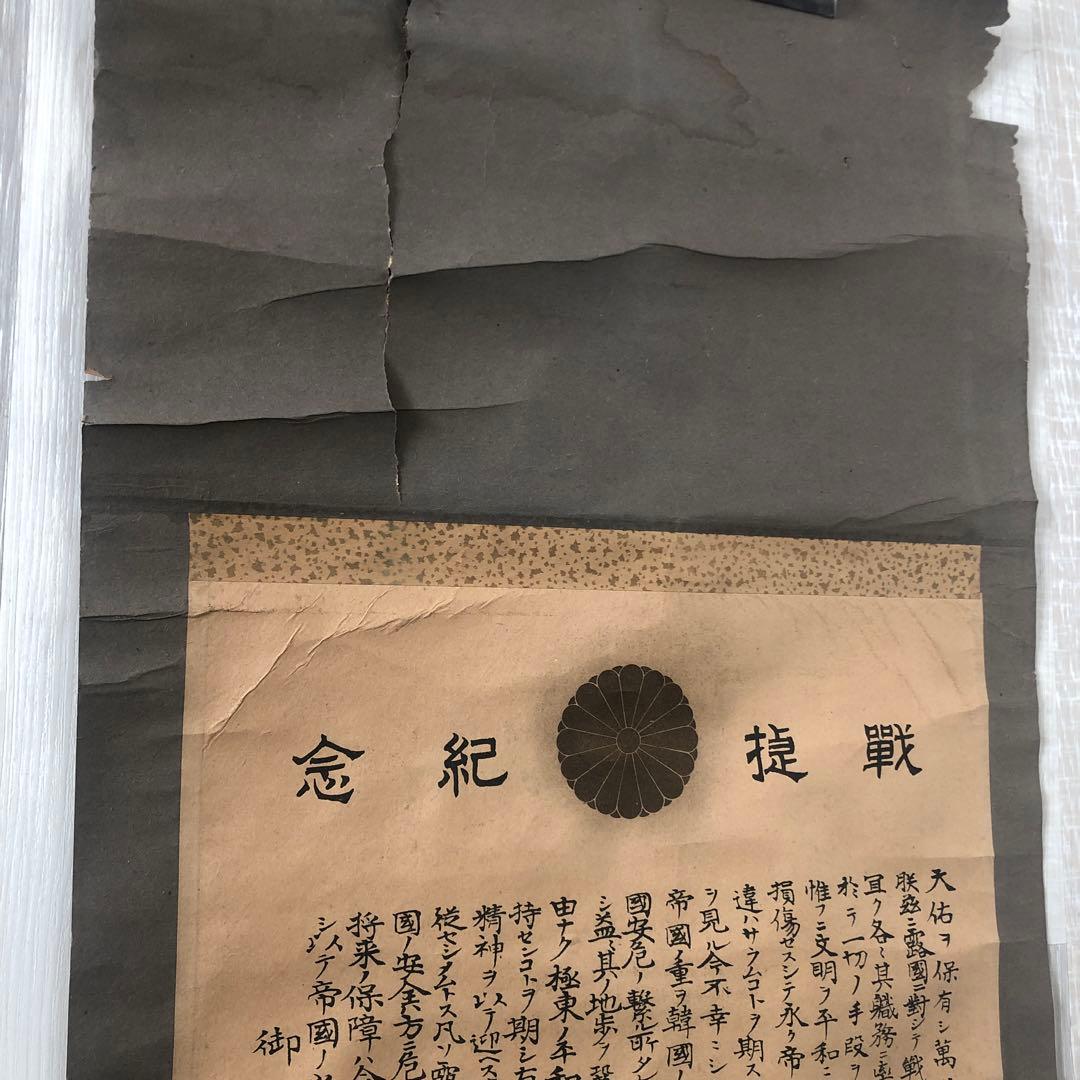 戰捷紀念
天佑ヲ保有シ萬
朕茲ニ露國ニ對シテ戰
宜ク各〻其職務ニ率
於テ一切ノ手段ヲ
惟フニ文明ヲ平和ニ
損傷セスシテ永ク帝
違ハサラムコトヲ期ス
シ見ル今不幸ニシ
帝國ノ重ヲ韓國ノ
國安危ノ繋ル所タレ
シ益〻其ノ地歩ヲ
由ナク極東ノ平和
持センコトヲ期シ
精神ヲ以テ迎ヘス
從セシメムトス凡ソ
國ノ安全方ニ危
将来ノ保障ハ今
シ以テ帝國ノ
御